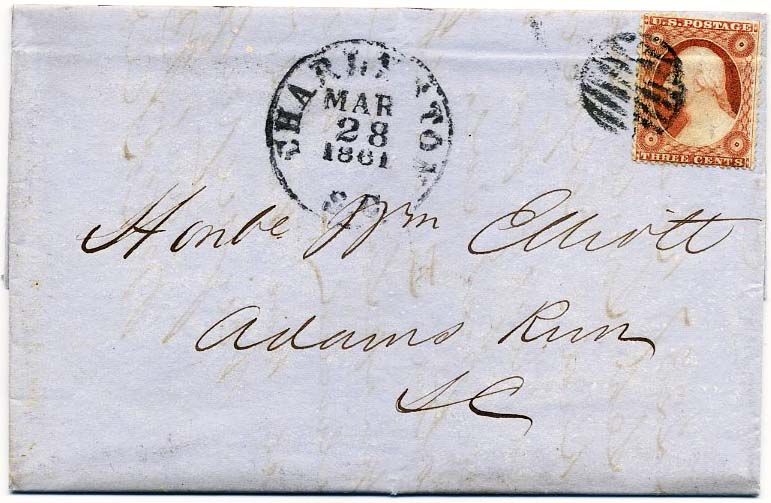 U.S. POSTAGE
THREE CENTS
CHARLESTON
MAR
28
1861
S.C.
Honbe. Wm Elliott
Adams Run
SC